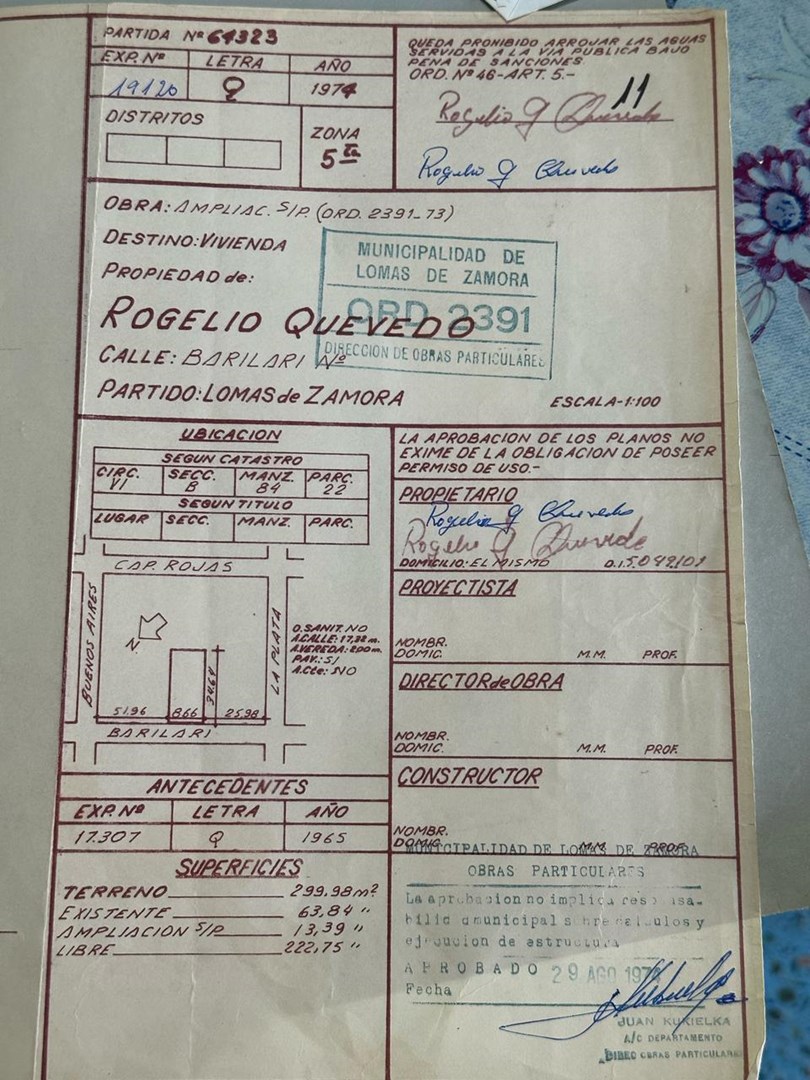 PARTIDA Nº 61323
EXP. Nº LETRA AÑO
19120 Q 1974
DISTRITOS
ZONA
5ta
QUEDA PROHIBIDO ARROJAR LAS AGUAS
SERVIDAS A LA VIA PUBLICA BAJO
PENA DE SANCIONES
ORD. Nº 46-ART. 5.-
11
Rogelio G Quevedo
Rogelio G Quevedo
OBRA: AMPLIAC. S/P. (ORD. 2391-73)
DESTINO: VIVIENDA
PROPIEDAD de:
ROGELIO QUEVEDO
CALLE: BARILARI Nº
PARTIDO: LOMAS de ZAMORA
ESCALA-1:100
MUNICIPALIDAD DE
LOMAS DE ZAMORA
ORD 2391
DIRECCION DE OBRAS PARTICULARES
UBICACION
SEGUN CATASTRO
CIRC. SECC. MANZ. PARC.
VI B 84 22
SEGUN TITULO
LUGAR SECC. MANZ. PARC.
CAP. ROJAS
BUENOS AIRES
LA PLATA
N
34.64
51.96 8.66 25.98
BARILARI
O. SANIT. NO
A. CALLE: 17,32 m.
A. VEREDA: 2.00 m.
PAV.: SI
A. Cte: NO
ANTECEDENTES
EXP. Nº LETRA AÑO
17.307 Q 1965
SUPERFICIES
TERRENO 299.98 m²
EXISTENTE 63,84 "
AMPLIACION S/P 13,39 "
LIBRE 222,75 "
LA APROBACION DE LOS PLANOS NO
EXIME DE LA OBLIGACION DE POSEER
PERMISO DE USO.-
PROPIETARIO
Rogelio G Quevedo
Rogelio G Quevedo
DOMICILIO: EL MISMO D.I. 5.049101
PROYECTISTA
NOMBR.
DOMIC. M.M. PROF.
DIRECTOR de OBRA
NOMBR.
DOMIC. M.M. PROF.
CONSTRUCTOR
NOMBR.
DOMIC. M.M. PROF.
MUNICIPALIDAD DE LOMAS DE ZAMORA
OBRAS PARTICULARES
La aprobacion no implica responsa-
bilidad municipal sobre calculos y
ejecucion de estructura
APROBADO 29 AGO 197
Fecha
JUAN KUKIELKA
A/C DEPARTAMENTO
DIREC OBRAS PARTICULARES